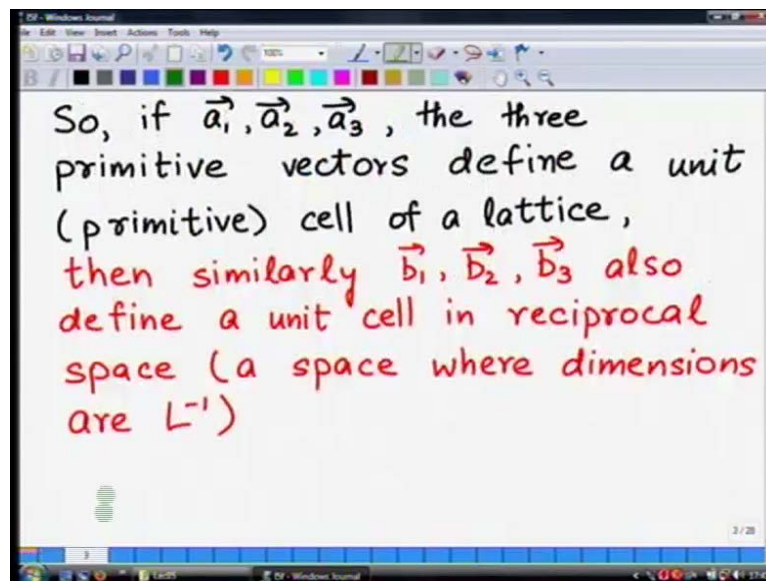 ISF - Windows Journal
File Edit View Insert Actions Tools Help
100%
B I
So, if a⃗₁, a⃗₂, a⃗₃, the three
primitive vectors define a unit
(primitive) cell of a lattice,
then similarly b⃗₁, b⃗₂, b⃗₃ also
define a unit cell in reciprocal
space (a space where dimensions
are L⁻¹)
3
Lec05
ISF - Windows Journal